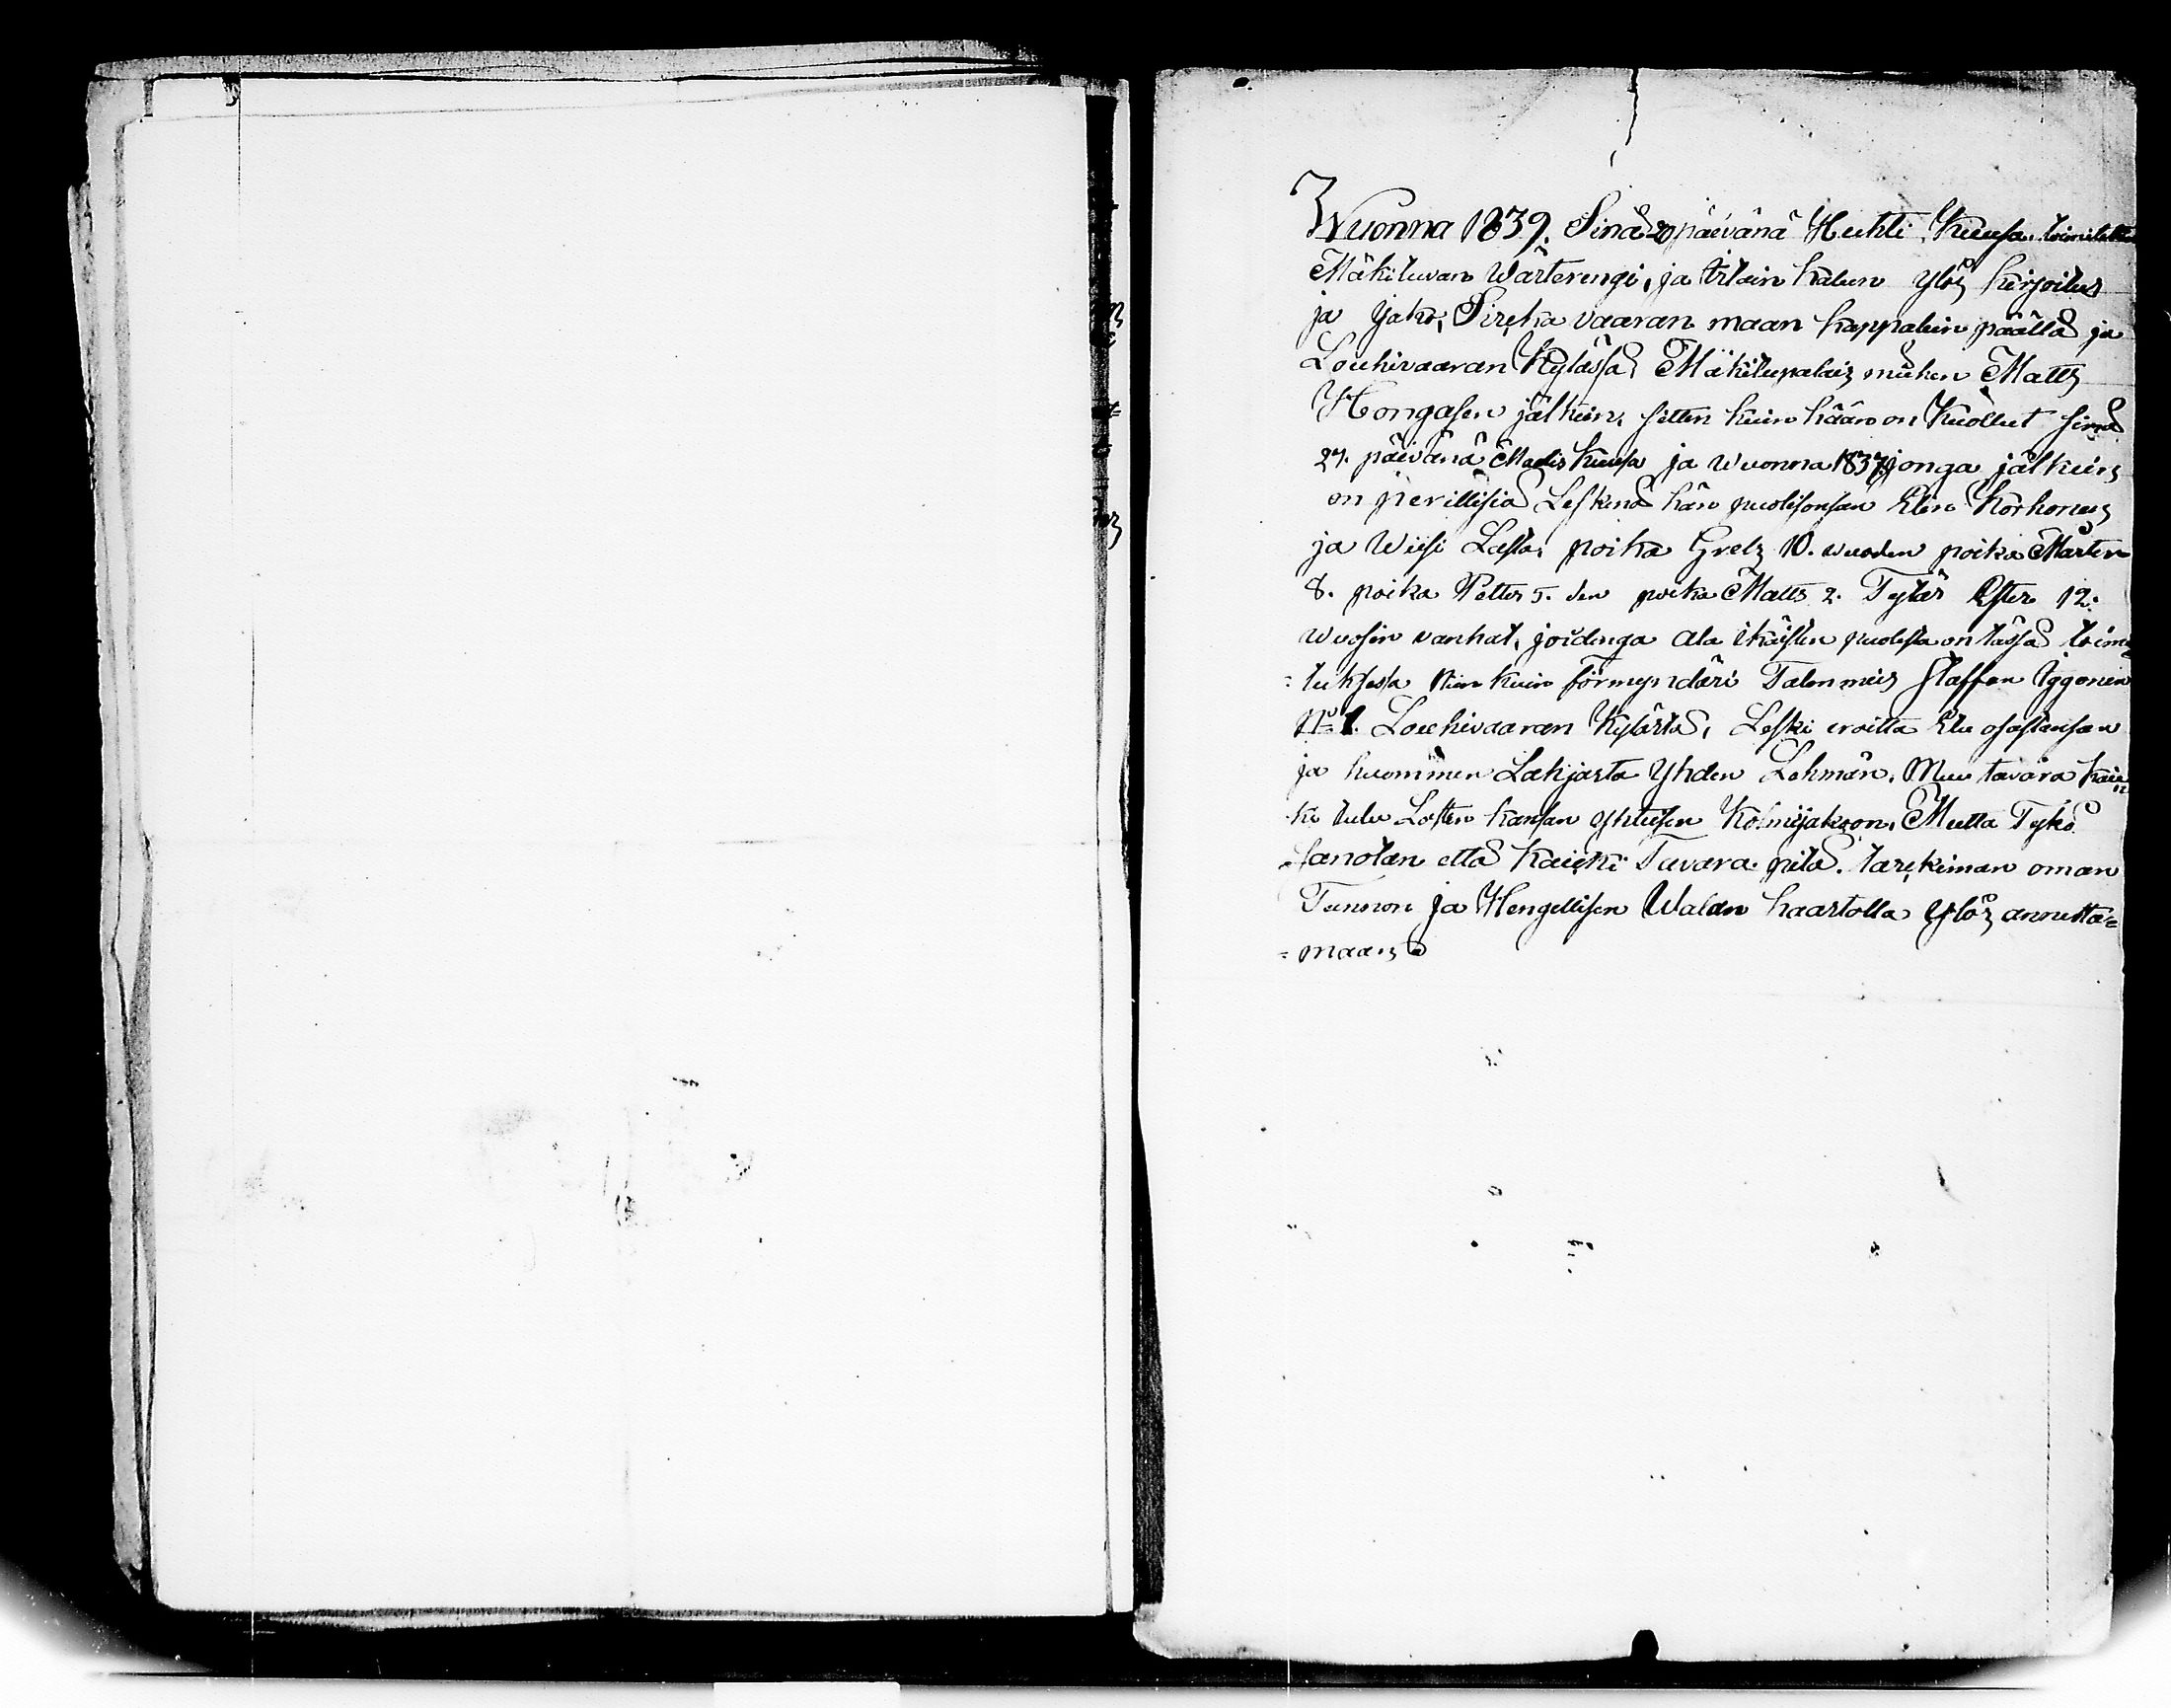 Wuonna 1839. Sinä 20 päivänä Huhti Kuusa toimitettin
Mäkituvan Wärterengi, ja tilain kalun ylöz kirjoitus
ja Jako, Sirkka vaaran maan kappalein päällä ja
Louhivaaran Kylässä, Mäkitupalaiz miehen Matts
Hongasen jälkein, sitten kuin hään on Kuollut sinä
27. päivänä Madis kuusa ja wuonna 1837 jonga jälkeinz
on perillisiä Leskinä hän puolisonsan Elin Korhonenz
ja Wiisi Lasta, poika Grelz 10. wuoden poika Mårten
8. poika Petter 5. den poika Matts 2. Tytär Ester 12.
wuosin vanhat, joidenga ala ikäisten puolesta on tässä toimi
=tuksessa Niin kuin förmyndäri Talon miez Staffan Iggonen
No 1. Louhivaaran Kylästä, Leski eroitta Etu osastansan
ja huominen Lahjasta Yhden Lehmän. Muu tavara kaik
ki tulu Lasten kansan yhteisen Kolmijakoon, Mutta Tykö
sanotan että kaikki Tavara pitä tarkiman oman
Tunnon ja Hengellisen Walan kaartolla ylöz annetta=
=maanz